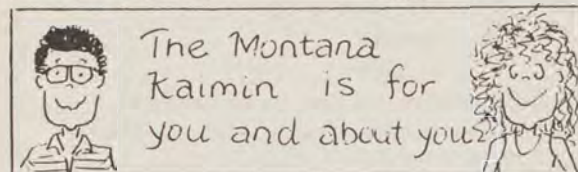 The Montana
Kaimin is for
you and about you.